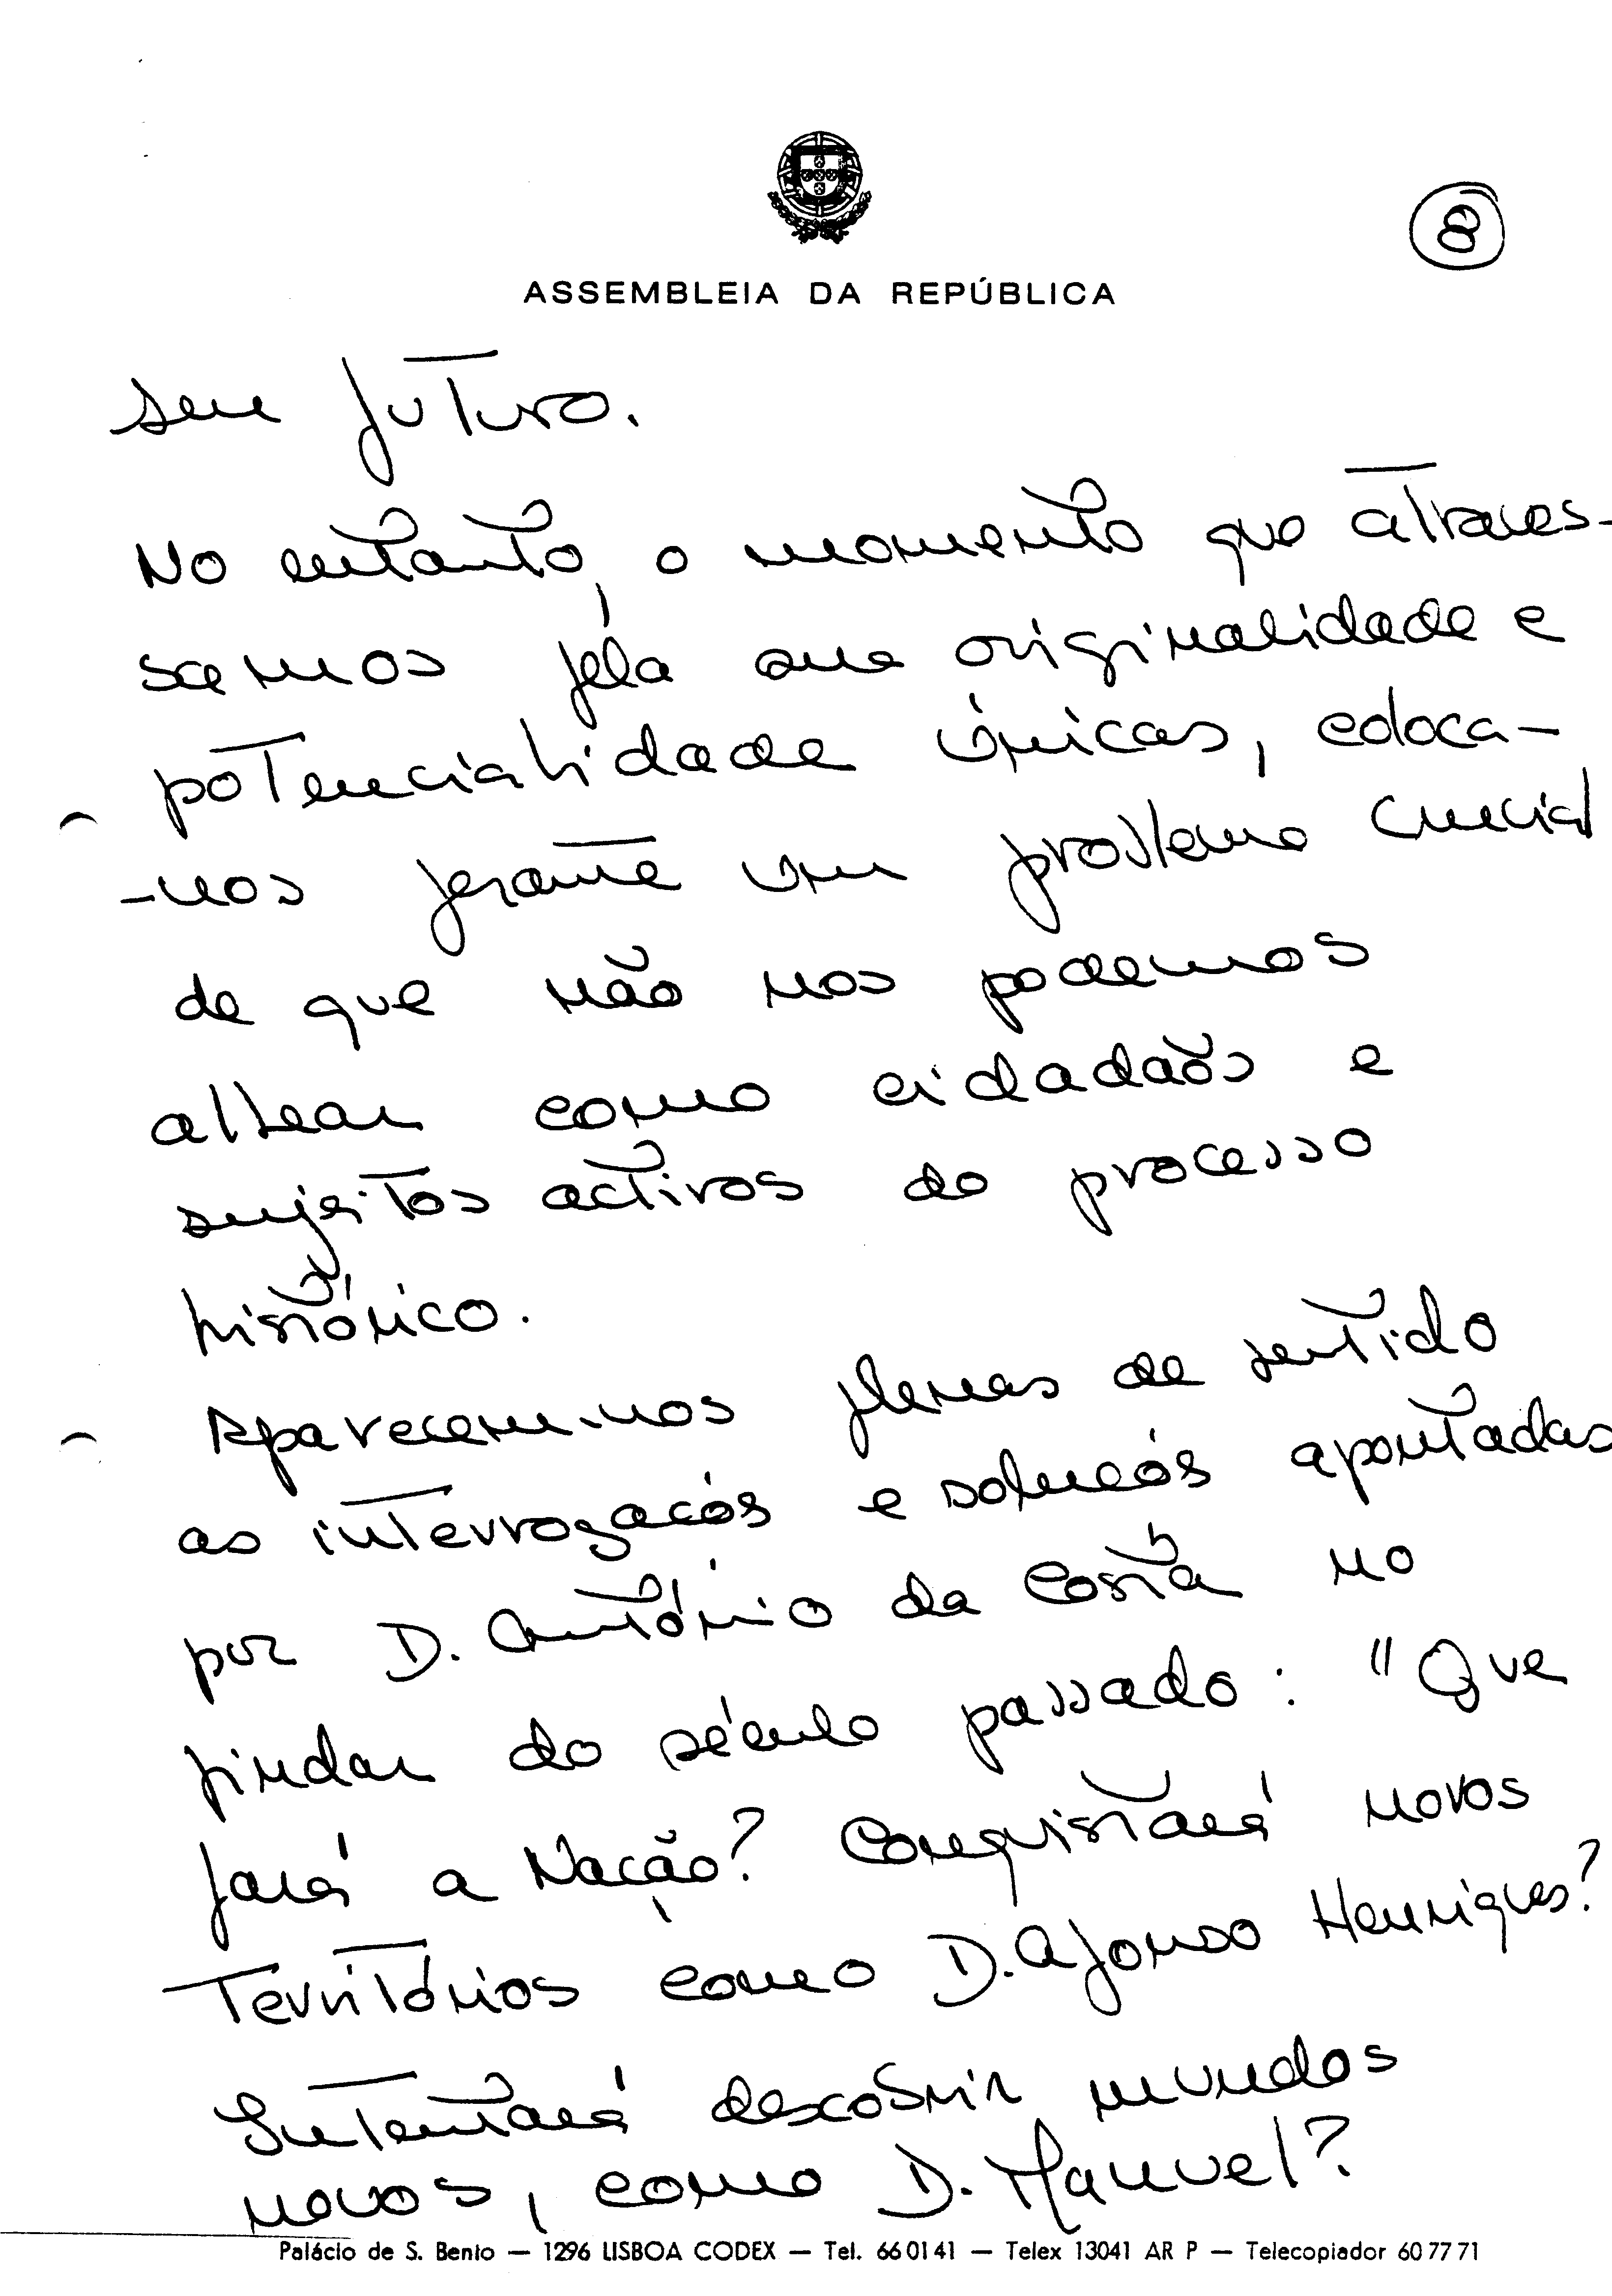 8
ASSEMBLEIA DA REPÚBLICA
seu futuro.
No entanto, o momento que atraves-
samos pela sua originalidade e
potencialidade únicas, coloca-
-nos perante um problema crucial
de que não nos podemos
alhear como cidadãos e
sujeitos activos do processo
histórico.
Aparecem-nos plenas de sentido
as interrogações e soluções apontadas
por D. António da Costa no
findar do século passado: "Que
fará a Nação? Conquistará novos
Territórios como D. Afonso Henriques?
Intentará descobrir mundos
novos, como D. Manuel?
Palácio de S. Bento — 1296 LISBOA CODEX — Tel. 66 01 41 — Telex 13041 AR P — Telecopiador 60 77 71